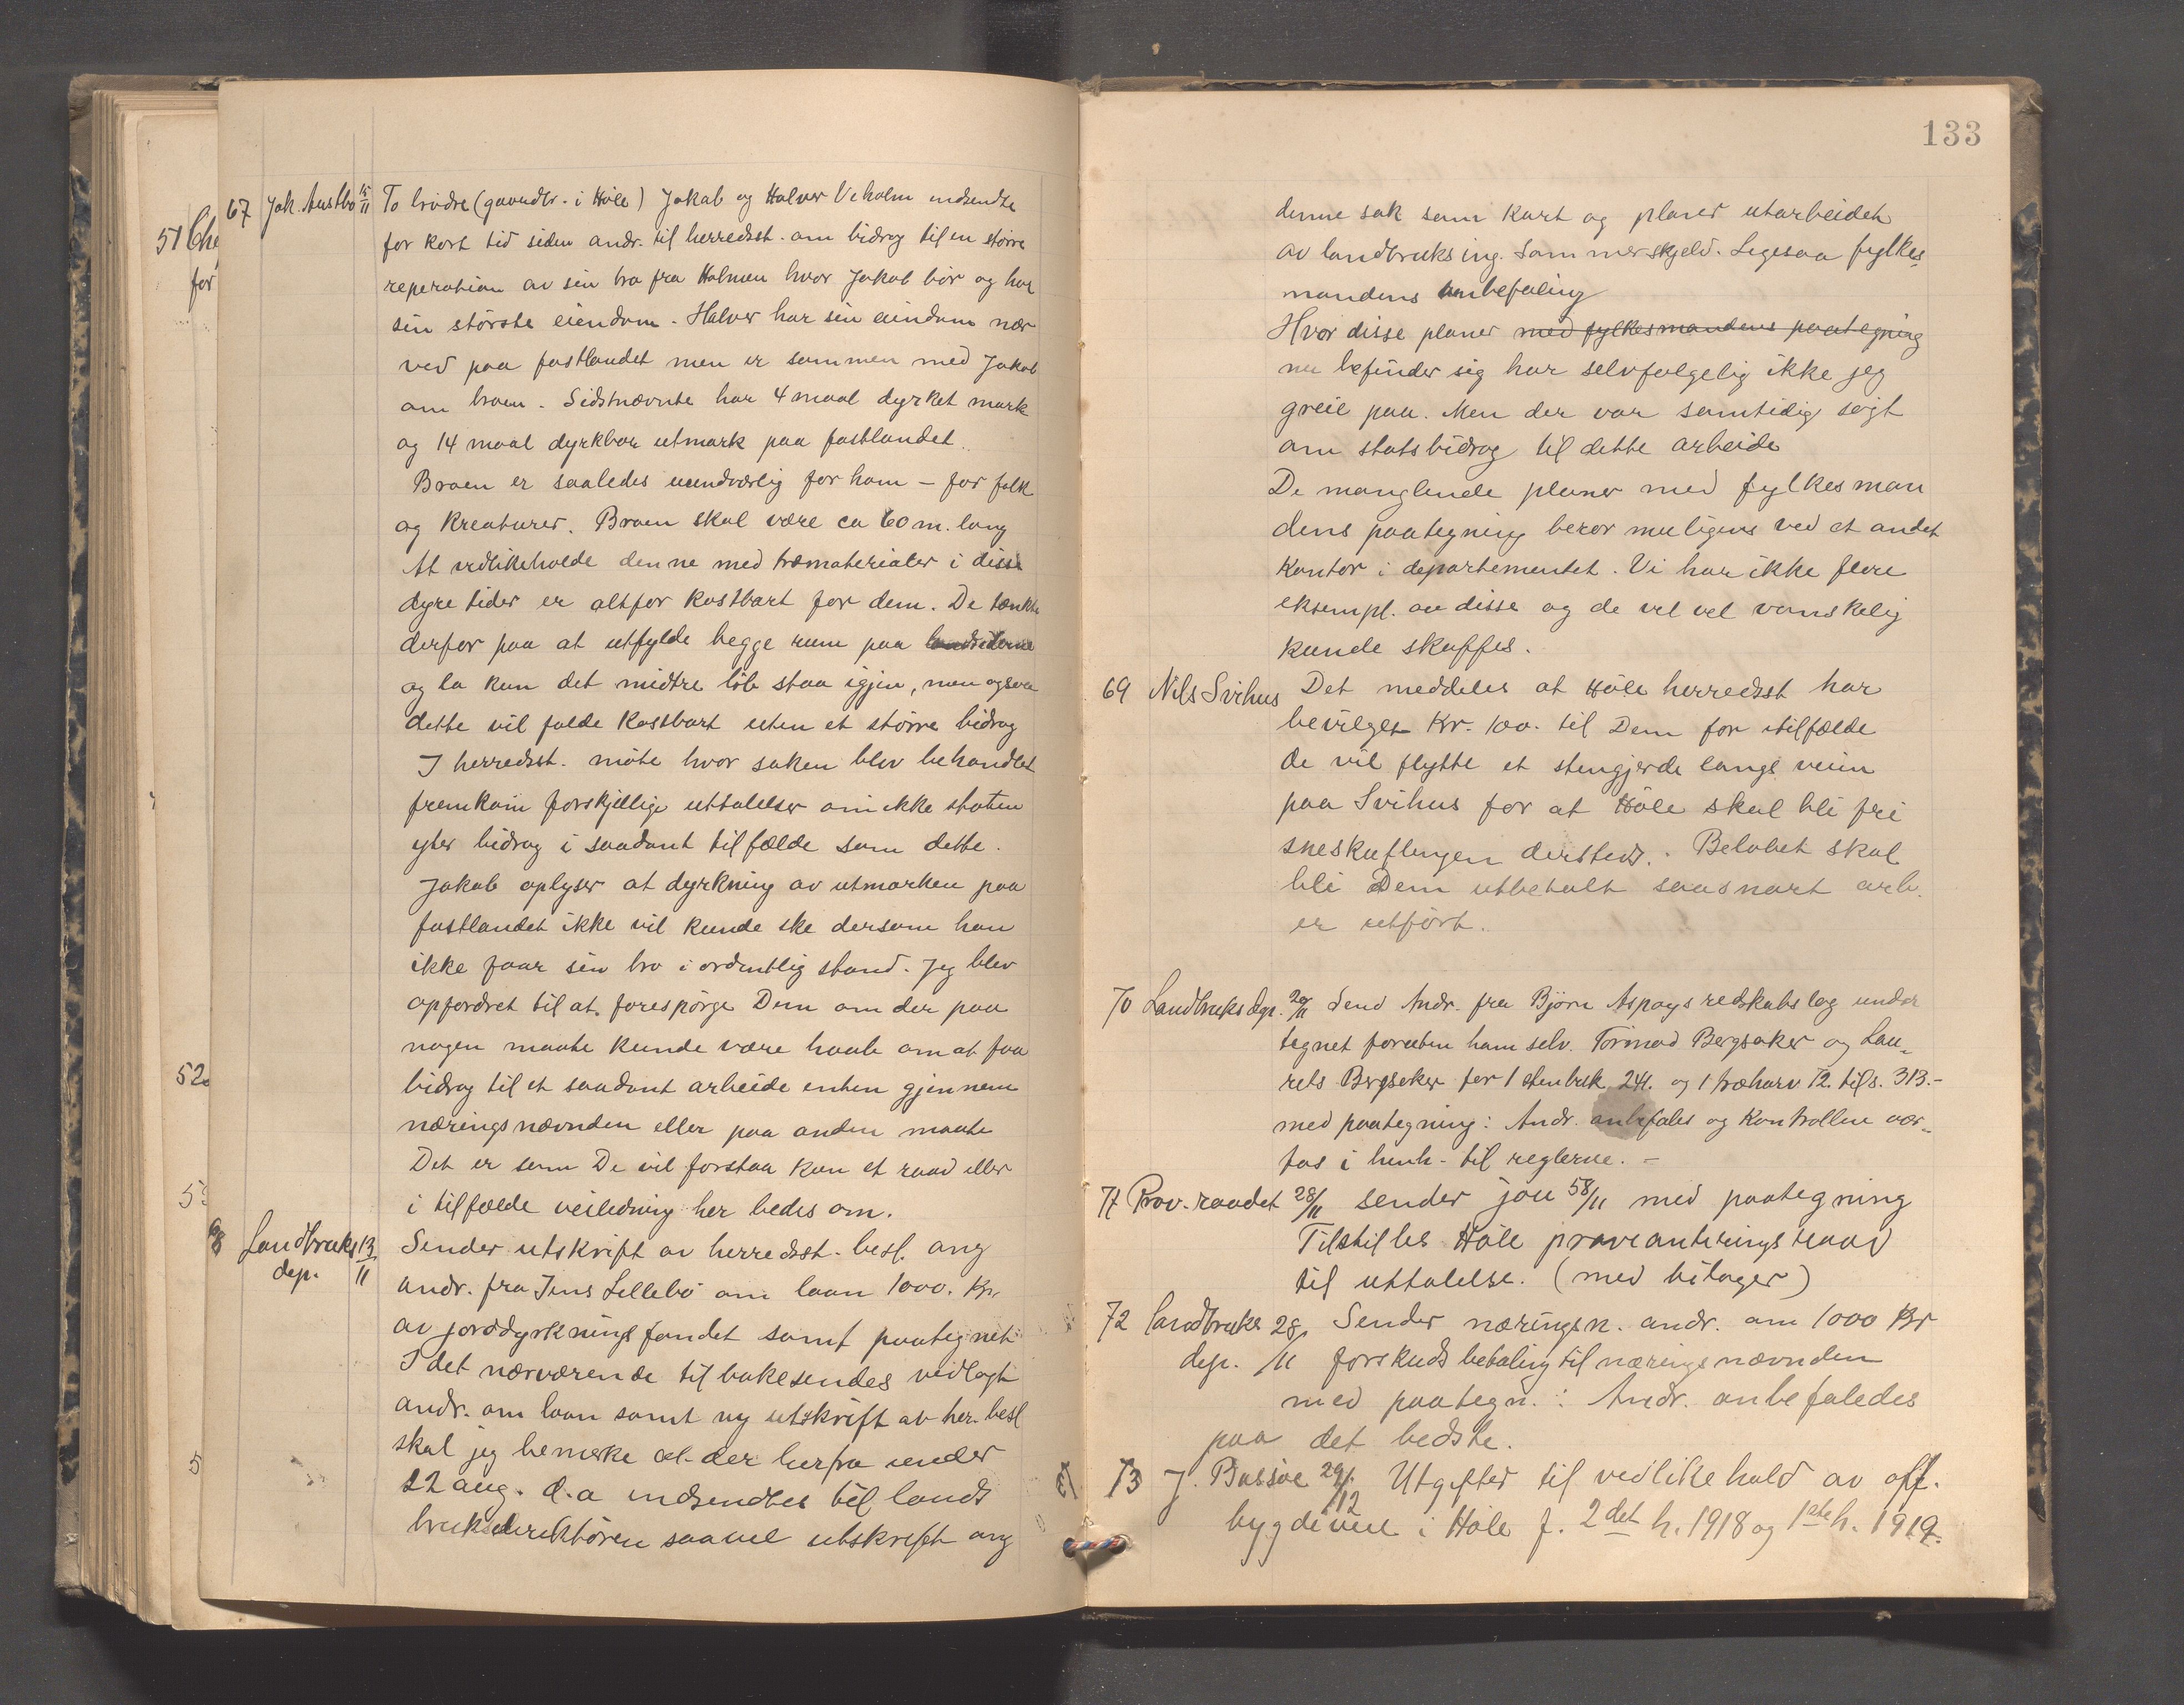 67 Jak. Austbö 15/11 To brödre (gaardbr. i Höle) Jakob og Halvor Veholm indsendte
for kort tid siden andr. til herredsst. om bidrag til en större
reperation av sin bro fra Holmen hvor Jakob bor og har
sin störste eiendom. Halvor har sin eiendom nær
ved paa fastlandet men er sammen med Jakob
om broen. Sidstnævnte har 4 maal dyrket mark
og 14 maal dyrkbar utmark paa fastlandet.
Broen er saaledes uundværlig for ham – for folk
og kreaturer. Broen skal være ca 60 m. lang
At vedlikeholde denne med træmaterialer i disse
dyre tider er altfor kostbart for dem. De tænkte
derfor paa at utfylde begge rum paa landsiderne
og la kun det midtre löb staa igjen, men ogsaa
dette vil falde kostbart uten et större bidrag
I herredsst. möte hvor saken blev behandlet
fremkom forskjellige uttalelser om ikke staten
yter bidrag i saadant tilfælde som dette.
Jakob oplyser at dyrkning av utmarken paa
fastlandet ikke vil kunde ske dersom han
ikke faar sin bro i ordentlig stand. Jeg blev
opfordret til at forespörge Dem om der paa
nogen maate kunde være haab om at faa
bidrag til et saadant arbeide enten gjennem
næringsnævnden eller paa anden maate
Det er som De vil forstaa kun et raad eller
i tilfælde veiledning her bedes om.
68 Landbruks 13/11 Sender utskrift av herredsst. besl. ang
dep. andr. fra Jens Lillebö om laan 1000. Kr.
av jorddyrkningsfondet samt paategnet
I det nærværende tilbakesendes vedlagt
andr. om laan samt ny utskrift av her. besl
skal jeg bemerke at der herfra under
22 aug. d.a indsendtes til lands
bruksdirektören saavel utskrift ang
51 Che
for
52
5
5
133
denne sak som kart og planer utarbeidet
av landbruksing. Sommerskjeld. Ligesaa fylkes
mandens anbefaling
Hvor disse planer med fylkesmandens paategning
nu befinder sig har selvfølgelig ikke jeg
greie paa. Men der var samtidig søgt
om statsbidrag til dette arbeide
De manglende planer med fylkesman
dens paategning beror muligens ved et andet
kontor i departementet. Vi har ikke flere
eksempl. av disse og de vil vel vanskelig
kunde skaffes.
69 Nils Svihus Det meddeles at Höle herredsst har
bevilget Kr. 100. til Dem for itilfælde
De vil flytte et stengjerde langs veien
paa Svihus for at Höle skal bli fri
sneskuflingen dersteds. Beløbet skal
bli Dem utbetalt saasnart arb.
er utfört.
70 Landbruksdep. 20/11 Send Andr. fra Björn Aspøys redskabslag under
tegnet foruten ham selv. Tormod Bergsaker og Lau-
rets Bergsaker for 1 stenbuk 241. og 1 træharv 72. tils. 313.-
med paategning: Andr. anbefales og kontrollen vær-
tas i henh. til reglerne. –
71 Prov. raadet 28/11 sender jou 58/11 med paategning
Tilstilles Höle provianteringsraad
til uttalelse. (med bilager)
72 Landbruks 28/11 Sender næringsn. andr. om 1000 Kr
dep. forskudsbetaling til næringsnævnden
med paategn.: Andr. anbefaledes
paa det bedste.
73 J. Bassöe 29/12 Utgifter til vedlikehold av off.
bygdeveie i Höle f. 2det h. 1918 og 1ste h. 1919.